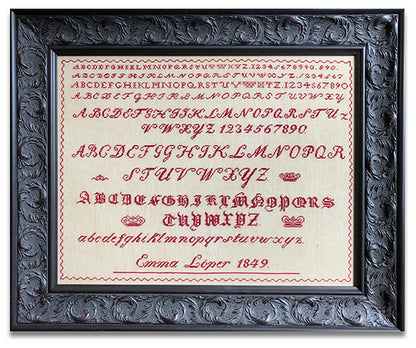 ABCDEFGHIKLMNOPQRSTUVWXYZ.1234567890.
ABCDEFGHIKLMNOPQRSTUVWXYZ.1234567
ABCDEFGHIKLMNOPQRSTUVWXYZ.1234567890
ABCDEFGHIKLMNOPQRSTUVWXYZ
ABCDEFGHIKLMNOPQRSTUV
VWXYZ 1234567890.
ABCDEFGHIKLMNOPQR
STUVWXYZ
ABCDEFGHIKLMNOPQRS
TUVWXYZ.
abcdefghiklmnopqrstuvwxyz.
Emma Löper 1849.